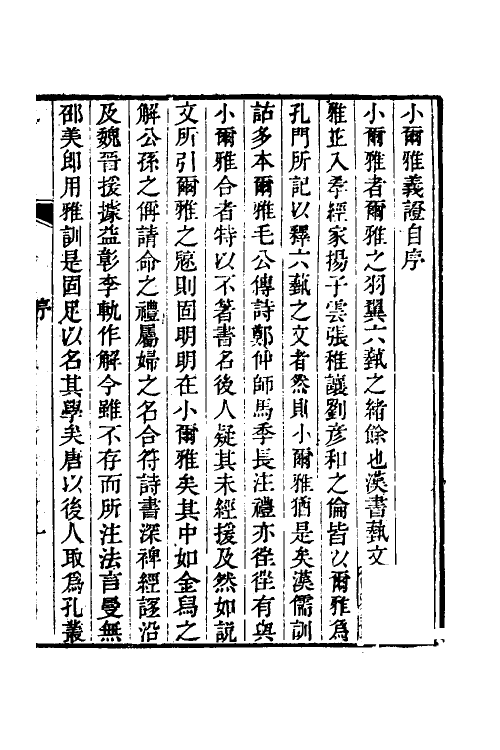 小爾雅義證自序
小爾雅者爾雅之羽翼六藝之緒餘也漢書藝文
雅竝入孝經家揚子雲張稚讓劉彥和之倫皆以爾雅爲
孔門所記以釋六藝之文者然則小爾雅猶是矣漢儒訓
詁多本爾雅毛公傳詩鄭仲師馬季長注禮亦往往有與
小爾雅合者特以不著書名後人疑其未經援及然如說
文所引爾雅之𩗬則固明明在小爾雅矣其中如金舄之
解公孫之偁請命之禮屬婦之名合符詩書深裨經誼沿
及魏晉援據益彰李軌作解今雖不存而所注法言曼無
邵美卽用雅訓是固足以名其學矣唐以後人取爲孔叢
序